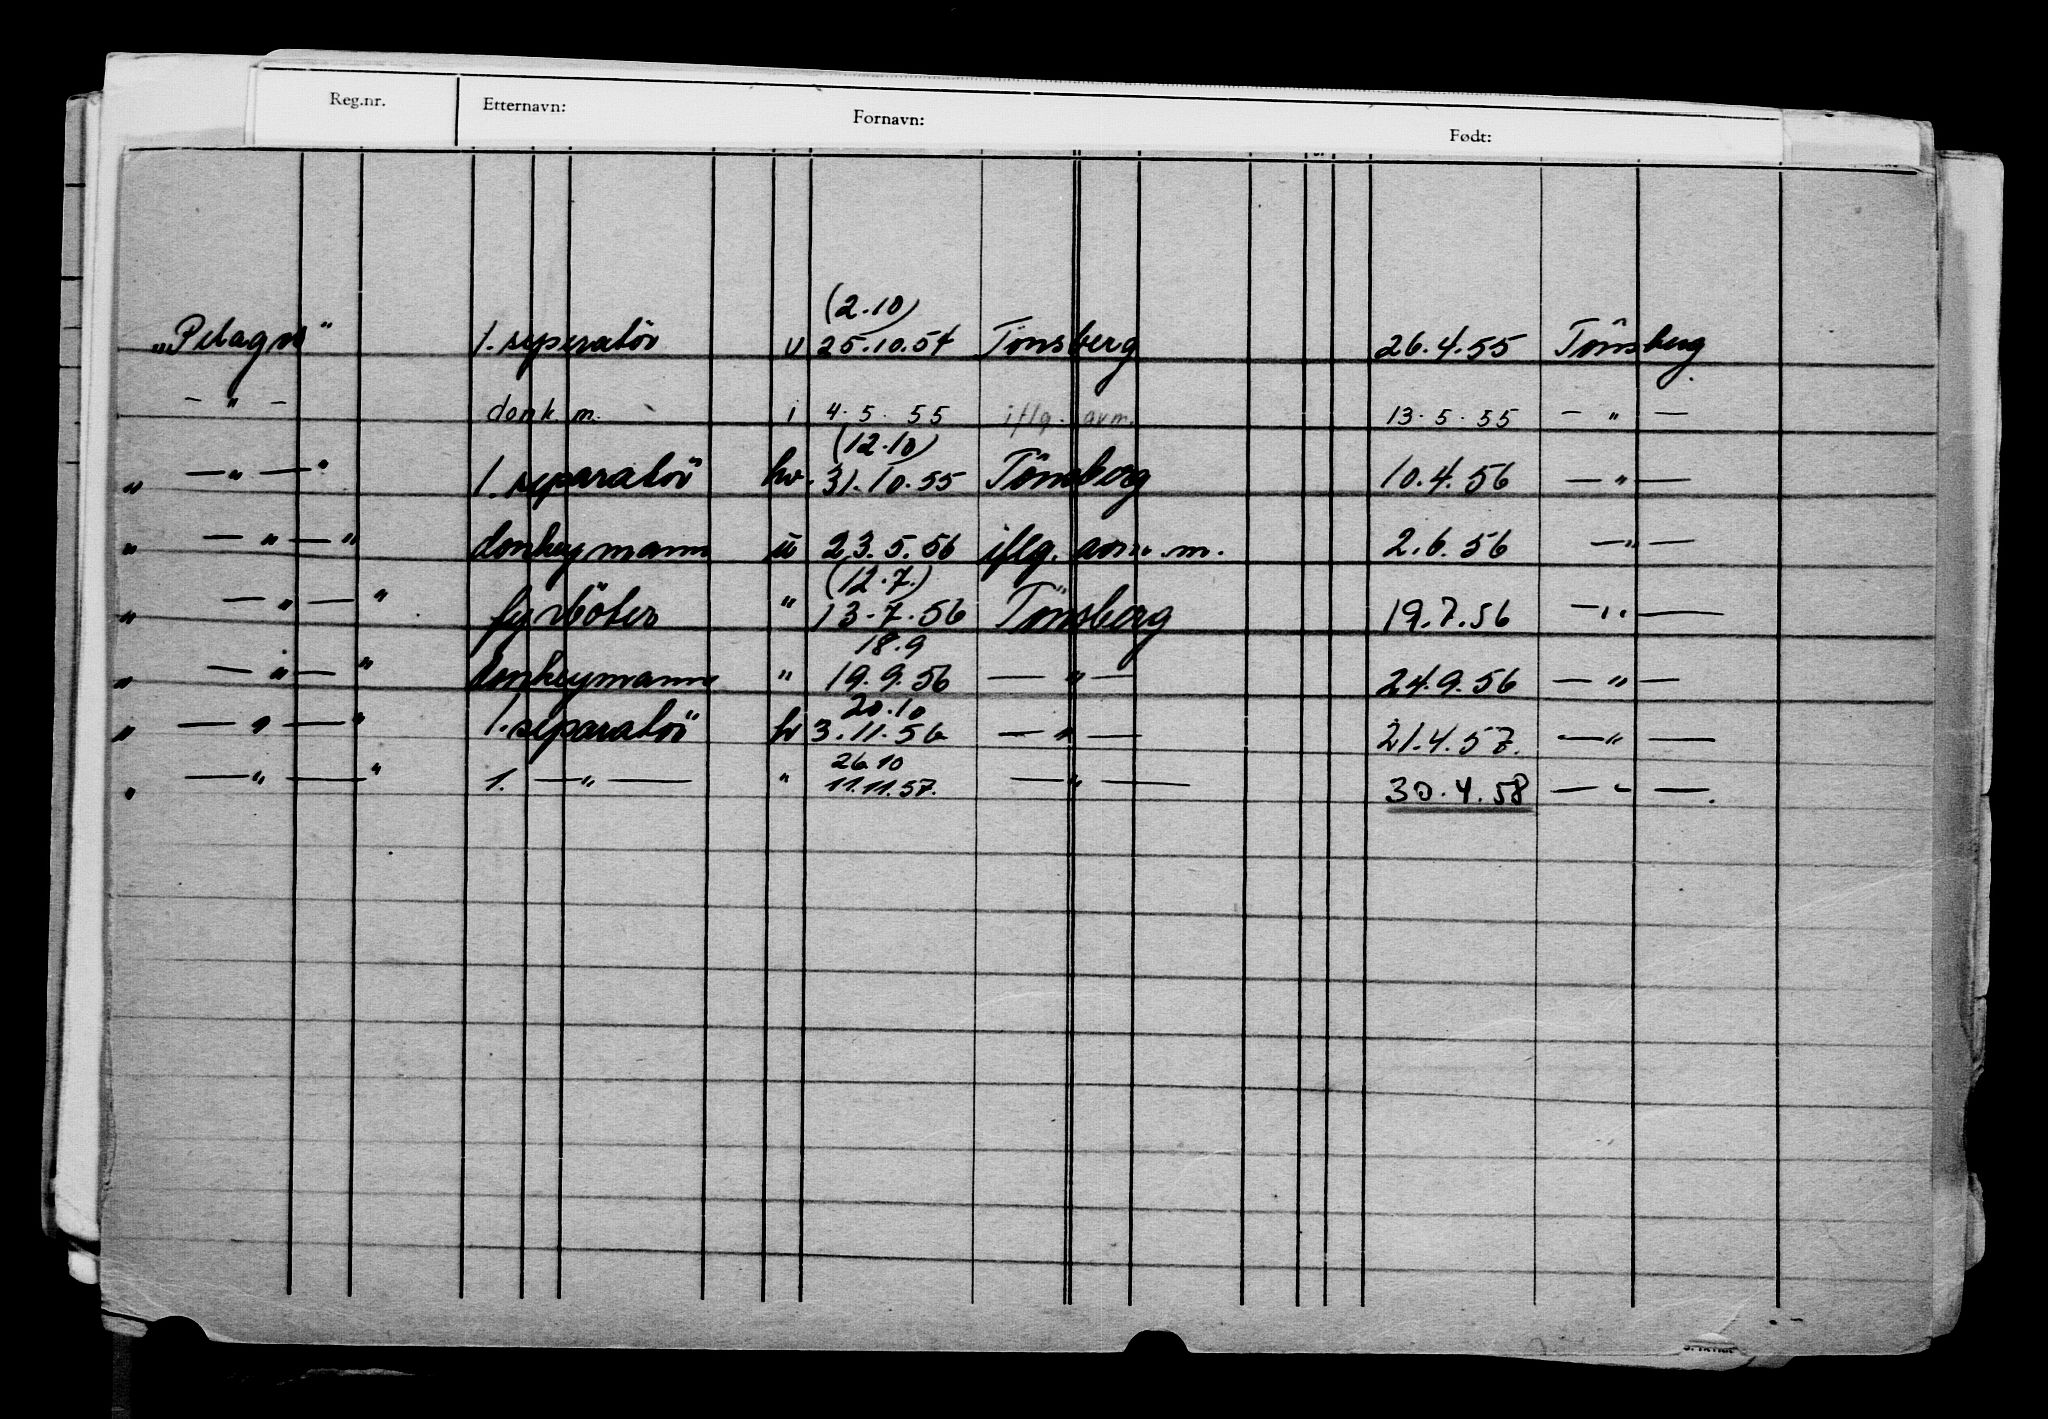 Reg.nr. Etternavn: Fornavn: Født:
(2.10)
„Pelagos" 1. seperatör u 25.10.54 Tønsberg 26.4.55 Tônsberg
- " - donk.m. i 4.5.55 iflg. avm. 13.5.55 - " -
(12.10)
" — " — " 1. separatör hv. 31.10.55 Tônsberg 10.4.56 — " —
" — " — " donkeymann u 23.5.56 iflg. avm. m. 2.6.56 — " —
(12.7.)
" — " — " fyrböter " 13.7.56 Tønsberg 19.7.56 — " —
18.9
" — " — " donkeymann " 19.9.56 — " — 24.9.56 — " —
20.10
" — " — " 1. separatör hv 3.11.56 — " — 21.4.57. — " —
26.10
" — " — " 1. — " — " 11.11.57. — " — 30.4.58 — " —.